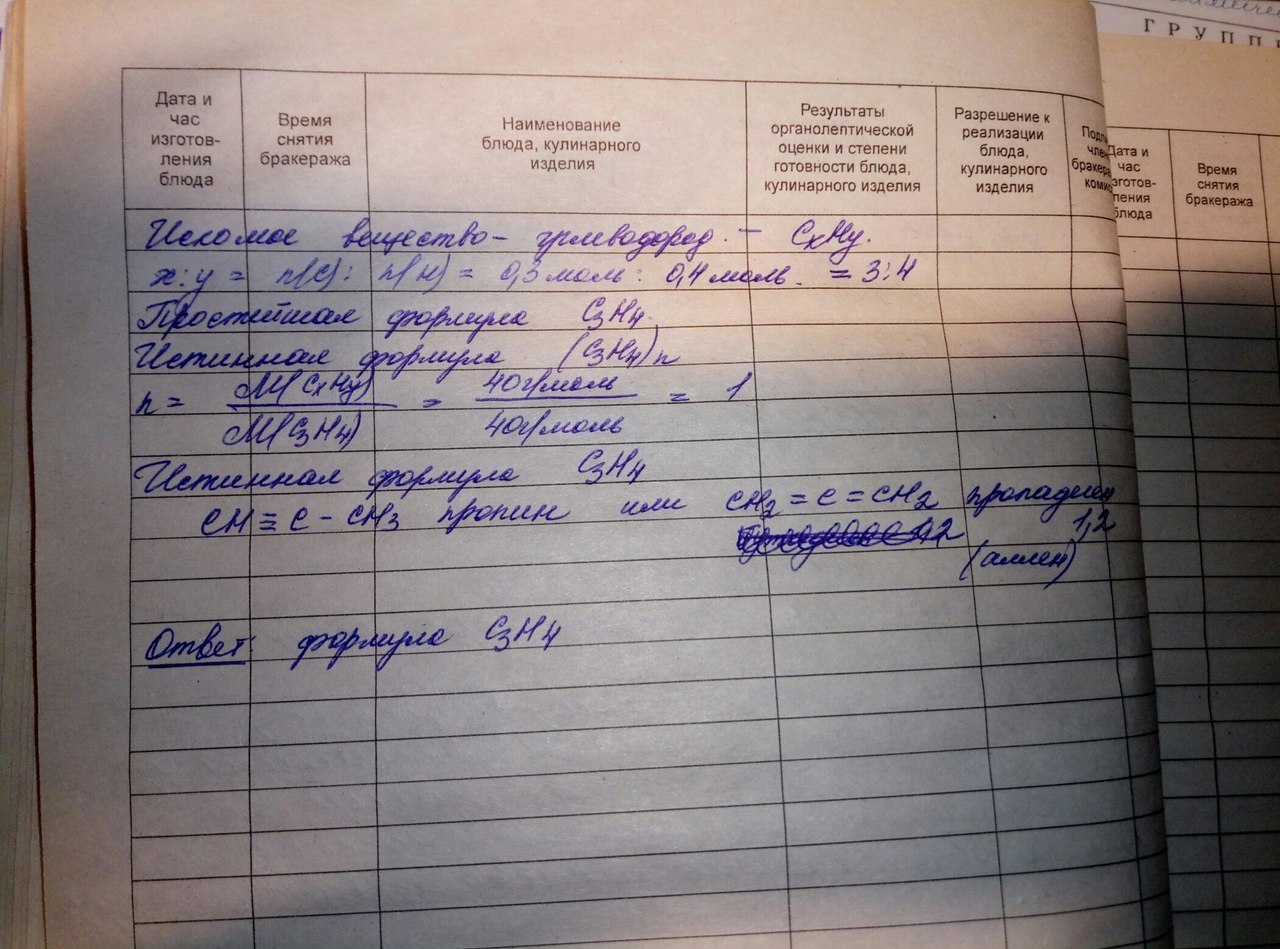 ГРУПП
Дата и
час
изготов-
ления
блюда
Время
снятия
бракеража
Наименование
блюда, кулинарного
изделия
Результаты
органолептической
оценки и степени
готовности блюда,
кулинарного изделия
Разрешение к
реализации
блюда,
кулинарного
изделия
Дата и
час
изготов-
ления
блюда
Время
снятия
бракеража
Искомое вещество - углеводород. - CxHy.
x:y = n(C): n(H) = 0,3 моль: 0,4 моль. = 3:4
Простейшая формула C3H4.
Истинная формула (C3H4)n
n = M(CxHy) = 40г/моль = 1
M(C3H4) 40г/моль
Истинная формула C3H4
CH≡C-CH3 пропин или CH2=C=CH2 пропадиен
1,2
(аллен)
Ответ: формула C3H4